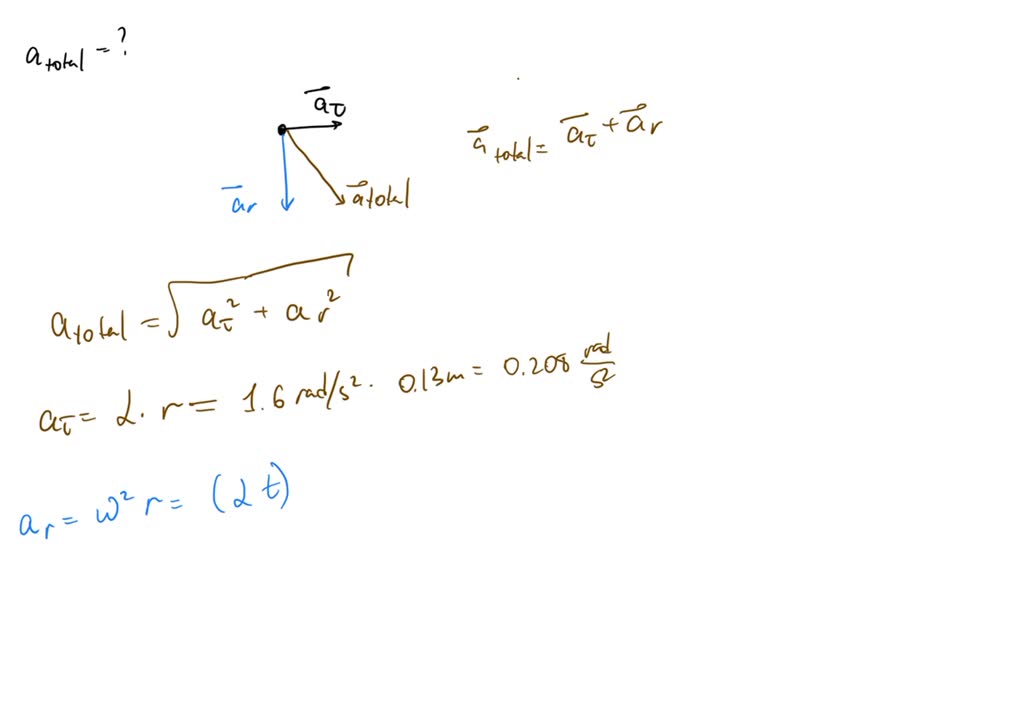 a total = ?
a⃗τ
a⃗total = a⃗τ + a⃗r
a⃗r
a⃗total
a total = √(aτ² + ar²)
aτ = α · r = 1.6 rad/s² · 0.13m = 0.208 rad/s²
ar = ω² r = (α t)